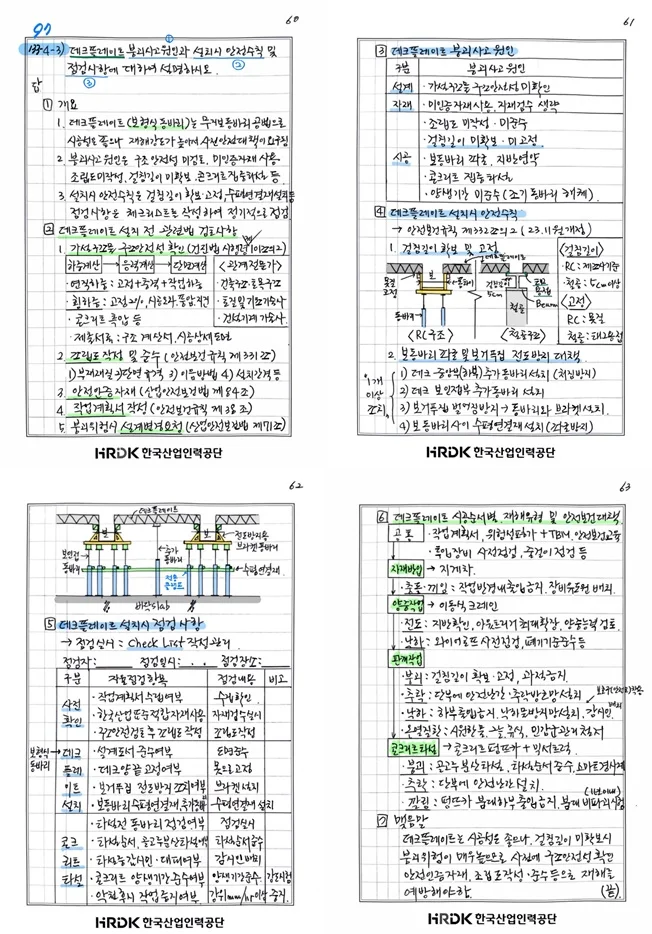 60
97
133-4-3) 데크플레이트 붕괴사고원인과 설치시 안전수칙 및 ①
점검사항에 대하여 설명하시오. ② ③
답
① 개요
1. 데크플레이트(보형식 동바리)는 무지보동바리공법으로
시공성은 좋으나 재해강도가 높아서 사전안전대책이 요구됨
2. 붕괴사고원인은 구조안전성 미검토, 미인증자재 사용
조립도 미작성, 걸침길이 미확보, 콘크리트 집중타설 등
3. 설치시 안전수칙은 걸침길이 확보·고정, 수평연결재 설치 등
점검사항은 체크리스트를 작성하여 정기적으로 점검
② 데크플레이트 설치 전 관련법 검토사항
1. 가설구조물 구조안전성 확인 (건진법 시행령 101조의2)
하중계산 → 응력계산 → 단면계산
<관계전문가>
·연직하중 : 고정+충격+작업하중
·건축구조·토목구조
·횡하중 : 고정2%, 시공오차·풍압·지진
·토질및기초기술사
·콘크리트 측압 등
·건설기계기술사
·제출서류 : 구조계산서, 시공상세도면
2. 조립도 작성 및 준수 (안전보건규칙 제331조)
1) 부재재질 2) 단면규격 3) 이음방법 4) 설치간격 등
3. 안전인증자재 (산업안전보건법 제84조)
4. 작업계획서 작성 (안전보건규칙 제38조)
5. 붕괴위험시 설계변경요청 (산업안전보건법 제71조)
HRDK 한국산업인력공단
61
③ 데크플레이트 붕괴사고원인
구분 붕괴사고원인
설계 ·가설구조물 구조안전성 미확인
자재 ·미인증자재 사용, 자재검수 생략
시공
·조립도 미작성·미준수
·걸침길이 미확보·미고정
·보동바리 좌굴, 지반연약
·콘크리트 집중타설
·양생기간 미준수 (조기 동바리 해체)
④ 데크플레이트 설치시 안전수칙
→ 안전보건규칙 제332조의2 (23.11월 개정)
1. 걸침길이 확보 및 고정
<걸침길이>
데크플레이트
보
못질 고정
동바리
5cm
철골
Beam
RC : 제조사기준
철골 : 5cm이상
<고정>
RC : 못질
철골 : 태그용접
<RC구조> <철골구조>
2. 보동바리 좌굴 및 보거푸집 전도방지 대책
1개 이상 조치.
1) 데크 중앙부(하부) 추가동바리 설치 (처짐방지)
2) 데크 보인접부 추가동바리 설치
3) 보거푸집 벌어짐방지 → 동바리와 브라켓설치.
4) 보동바리사이 수평연결재 설치 (좌굴방지)
HRDK 한국산업인력공단
62
데크플레이트
보
보
전도방지용 브라켓동바리
보인접 동바리
추가 동바리
수평연결재
전용클램프
바닥slab
⑤ 데크플레이트 설치시 점검사항
→ 점검실시 : Check List 작성관리
점검자: 점검일시: . . 점검장소:
구분 자율점검항목 점검내용 비고
사전 확인
·작업계획서 수립여부 수립확인
·한국산업표준적합자재사용 자재검수실시
·구조안전검토후 조립도 작성 조립도작성
보형식 동바리
데크플레이트 설치
·설계도서 준수여부 도면준수
·데크양끝 고정여부 못의고정
·보거푸집 전도방지 조치여부 브라켓설치
·보동바리수평연결재, 추가동바리 수평연결재 설치
콘크리트 타설
·타설전 동바리 점검여부 점검실시
·타설순서, 콘크리트분산타설여부 타설순서준수
·타설중감시인·대피여부 감시인배치
·콘크리트 양생기간 준수여부 양생기간준수
·악천후시 작업중지여부 강우1mm/hr이상 중지
HRDK 한국산업인력공단
63
⑥ 데크플레이트 시공순서별, 재해유형 및 안전보건대책
공통 ·작업계획서, 위험성평가+TBM, 안전보건교육
·투입장비 사전점검, 출건이 점검 등
자재반입 → 지게차
·충돌·끼임 : 작업반경내출입금지, 장비유도원 배치.
양중작업 → 이동식크레인
·전도 : 지반확인, 아웃트리거최대확장, 양중능력 검토.
·낙하 : 와이어로프 사전점검, 폐기기준준수 등
판개작업
·붕괴 : 걸침길이 확보·고정, 과적금지.
·추락 : 단부에 안전난간·추락방호망설치
·낙하 : 하부출입금지, 낙하물방지망설치, 감시인 배치
·온열질환 : 시원한물, 그늘, 휴식, 민감군관리철저
콘크리트타설 → 콘크리트펌프카+믹서트럭
·붕괴 : 콘크리트분산타설, 타설순서 준수,
·추락 : 단부에 안전난간 설치.
·깔림 : 펌프카 붐대하부 출입금지, 붐대 비파괴시험
⑦ 맺음말
데크플레이트는 시공성은 좋으나, 걸침길이 미확보시
붕괴위험이 매우높으므로 사전에 구조안전성확인
안전인증자재, 조립도작성·준수등으로 재해를
예방해야함. (끝)
HRDK 한국산업인력공단